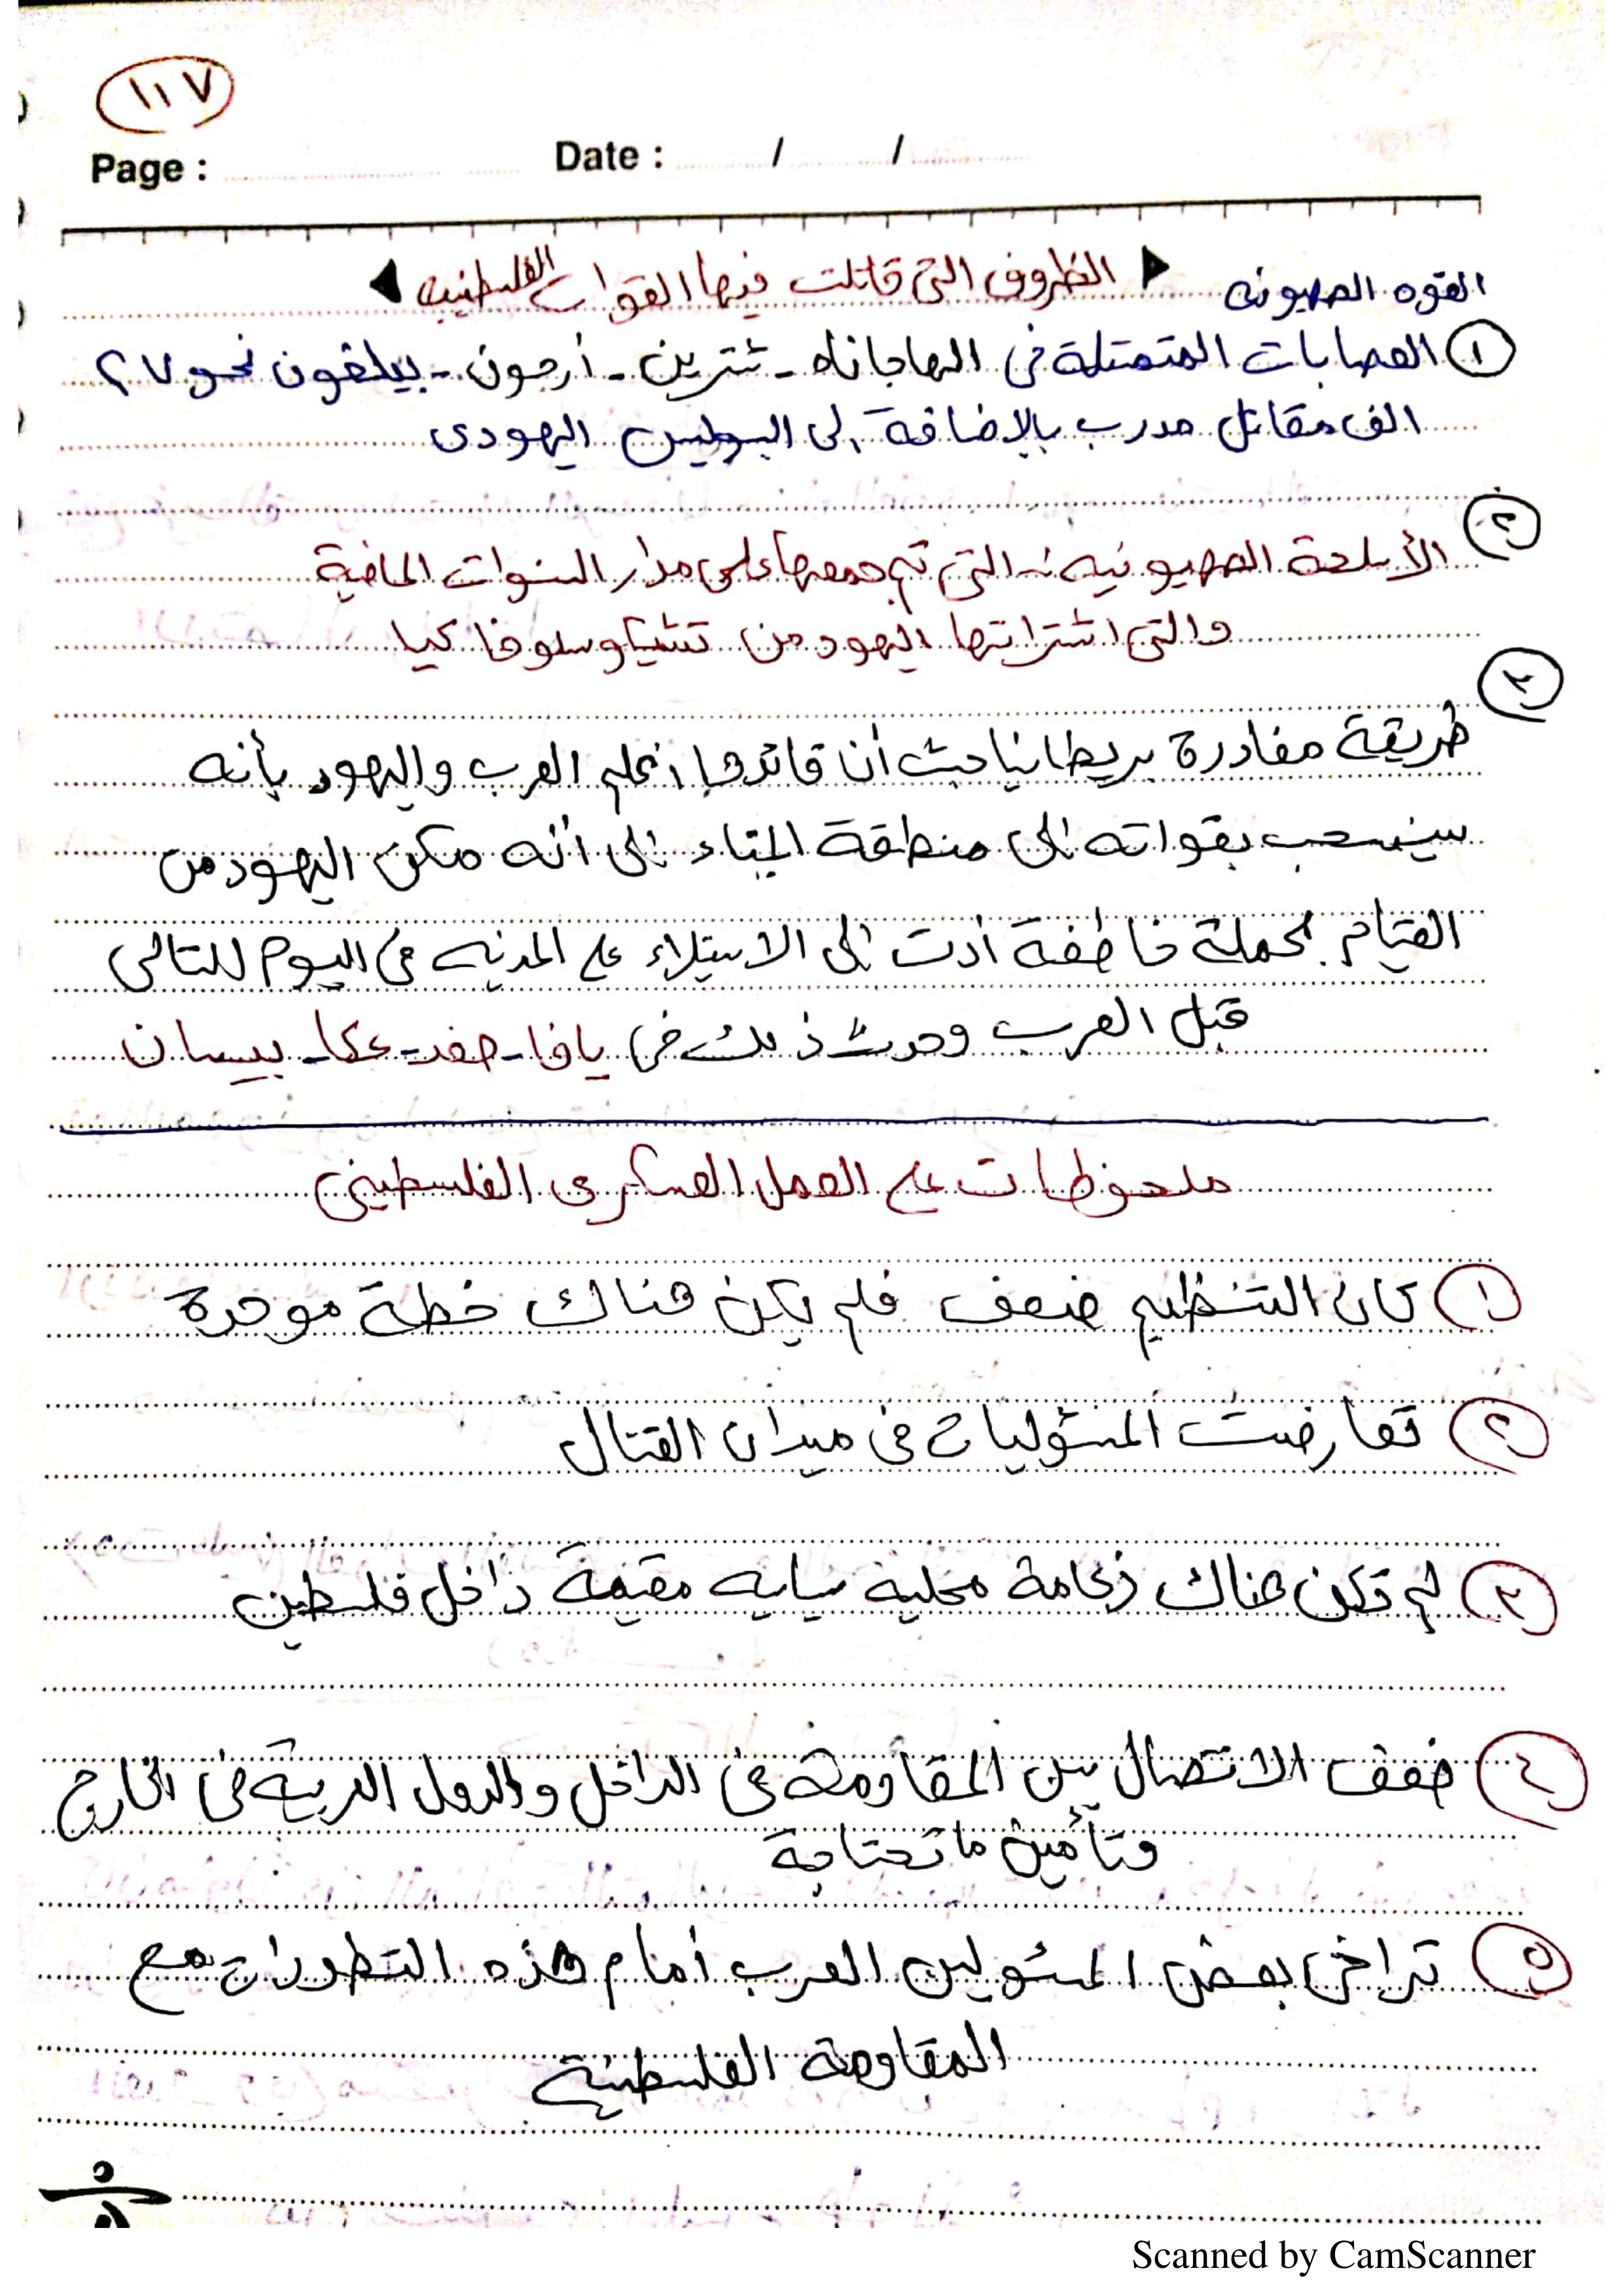 ١١٧
Page : Date : / /
◀ الظروف التى قاتلت فيها القوات الفلسطينيه ▶
القوه الصهيونه
١ العصابات المتمثلة فى الهاجاناه - شترين - أرجون - بيلغون نحو ٧٢
الف مقاتل مدرب بالإضافة إلى البوليس اليهودى
٢ الأسلحة الصهيونيه :- التى تم جمعها على مدار السنوات الماضية
والتى اشترتها اليهود من تشيكوسلوفاكيا
٣ طريقة مغادرة بريطانيا حيث أن قائدها اعلم العرب واليهود بأنه
سينسحب بقواته إلى منطقة الميناء إلى أنه مكن اليهود من
القيام بحملة خاطفة أدت إلى الاستيلاء على المدنيه فى اليوم للتالى
قبل العرب وحدث ذلك فى يافا - صفد - عكا - بيسان
ملحوظات على العمل العسكرى الفلسطينى
١ كان التنظيم ضعف فلم يكن هناك خطة موحدة
٢ تعارضت المسئوليات فى ميدان القتال
٣ لم تكن هناك زعامة محلية سياسيه مقيمة داخل فلسطين
٤ ضعف الاتصال بين المقاومة فى الداخل والدول العربية فى الخارج
وتأمين ما تحتاجة
٥ تراخى بعض المسئولين العرب أمام هذه التطورات مع
المقاومة الفلسطينية
Scanned by CamScanner